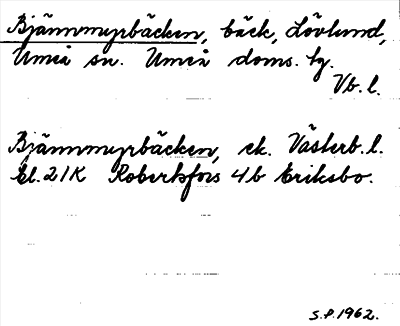 Bjännmyrbäcken, bäck, Lövlund,
Umeå sn. Umeå doms. hg.
Vb. l.
Bjännmyrbäcken, ek. Västerb. l.
bl. 21K Robertsfors 4b Eriksbo.
S.P. 1962.